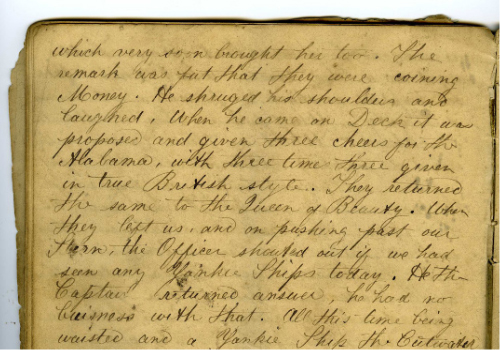 which very soon brought her too. The
remark was put that they were coining
Money. He shruged his shoulders and
laughed. When he came on Deck it was
proposed and given three cheers for the
Alabama, with three times three given
in true British style. They returned
the same to the Queen of Beauty. When
they left us, and on pushing past our
Stern, the Officer shouted out if we had
seen any Yankie Ships today. The
Captain returned answer, he had no
buisness with that. All this time being
waisted and a Yankie Ship the Cutwater